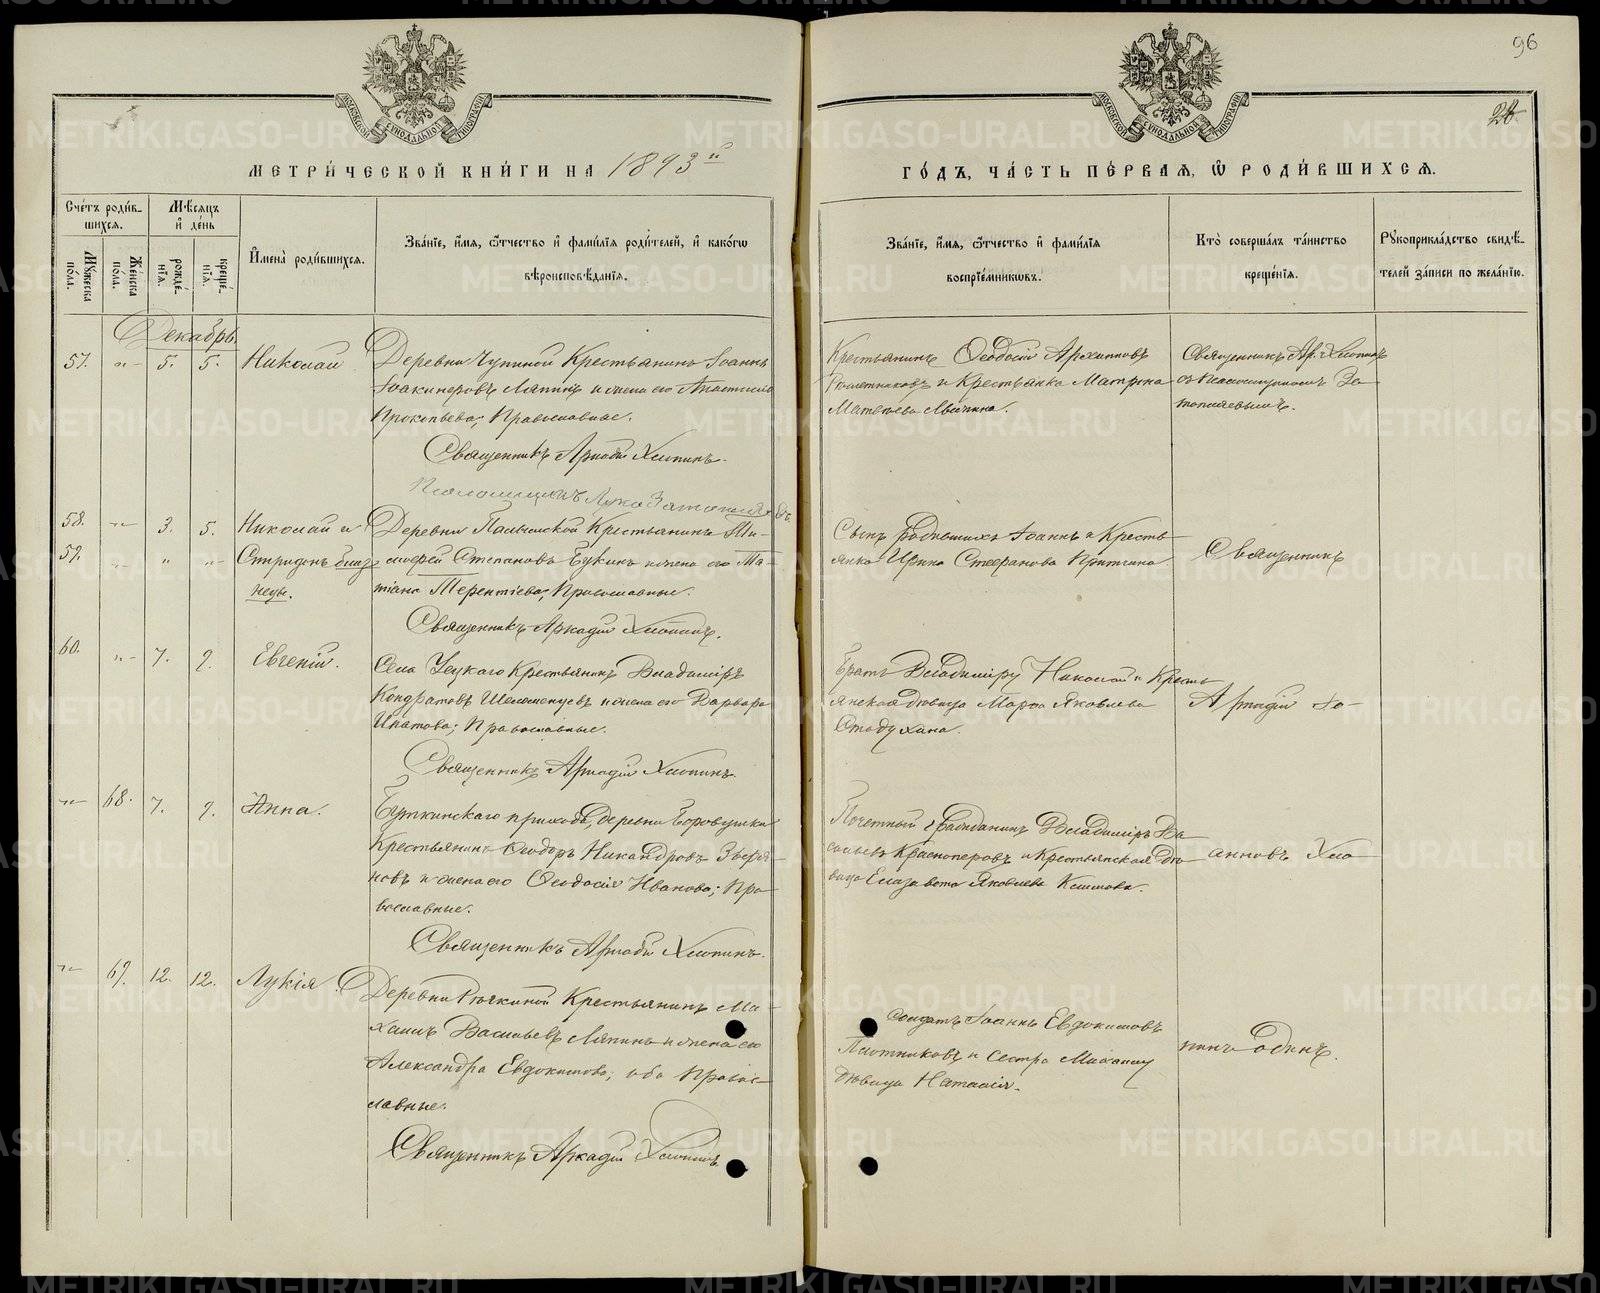 96
24
МЕТРИ́ЧЕСКОЙ КНИ́ГИ НА 1893й
ГО́ДЪ, ЧА́СТЬ ПЕ́РВАѦ, Ѡ҆ РОДИ́ВШИХСѦ.
Сче́тъ роди́в-
шихсѧ.
Мѣ́сѧцъ
и҆ де́нь
Мꙋ́жеска
по́ла.
Же́нска
по́ла.
рожде́-
нїѧ.
креще́-
нїѧ.
И҆мена̀ роди́вшихсѧ.
Зва́нїе, и҆́мѧ, ѻ҆́тчество и҆ фами́лїѧ роди́телей, и҆ како́гѡ
вѣроисповѣ́данїѧ.
Зва́нїе, и҆́мѧ, ѻ҆́тчество и҆ фами́лїѧ
воспрїе́мникѡвъ.
Кто̀ соверша́лъ та́инство
креще́нїѧ.
Рꙋкоприкла́дство свидѣ́-
телей за́писи по жела́нїю.
Декабрь.
57. „- 5. 5. Николай
Деревни Чупиной Крестьянинъ Іоаннъ
Іоакимовъ Ляпинъ и жена его Анастасія
Прокопьева; Православные.
Священникъ Аркадій Хлопинъ.
Псаломщикъ Лука
Крестьянинъ Ѳеодосій Архиповъ
Рѣшетниковъ и Крестьянка Матрона
Матвѣева
Священникъ Ар. Хлопинъ
съ Псаломщикомъ За-
58. -„- 3. 5. Николай и
59. „ „ „ Спиридонъ близ-
нецы.
Деревни Крестьянинъ Ти-
моѳей Степановъ Букинъ и жена его Та-
тіана Терентіева; Православные.
Священникъ Аркадій Хлопинъ.
Сынъ родившихъ Іоаннъ и Кресть-
янка Ирина Стефанова
Священникъ
60. „- 7. 9. Евгеній.
Села Крестьянинъ Владиміръ
Кондратовъ и жена его Варвара
Ипатова; Православные.
Священникъ Аркадій Хлопинъ.
Братъ Владиміру Николай и Кресть-
янская дѣвица Марѳа Яковлева
Стадухина.
Аркадій Іо-
-„- 68. 7. 9. Анна.
Буткинскаго прихода, деревни Боровушки
Крестьянинъ Ѳеодоръ Никандровъ Зыря-
новъ и жена его Ѳеодосія Иванова; Пра-
вославные.
Священникъ Аркадій Хлопинъ.
Почетный гражданинъ Владиміръ Ва-
сильевъ Красноперовъ и Крестьянская дѣ-
вица Елизавета Яковлева
анновъ Хло-
-„- 69. 12. 12. Лукія.
Деревни Крестьянинъ Ми-
хаилъ Васильевъ Ляпинъ и жена его
Александра Евдокимова, оба Право-
славные.
Священникъ Аркадій Хлопинъ.
Солдатъ Іоаннъ Евдокимовъ
Плотниковъ и сестра Михаилу
дѣвица Наталія.
пинъ одинъ.
METRIKI.GASO-URAL.RU